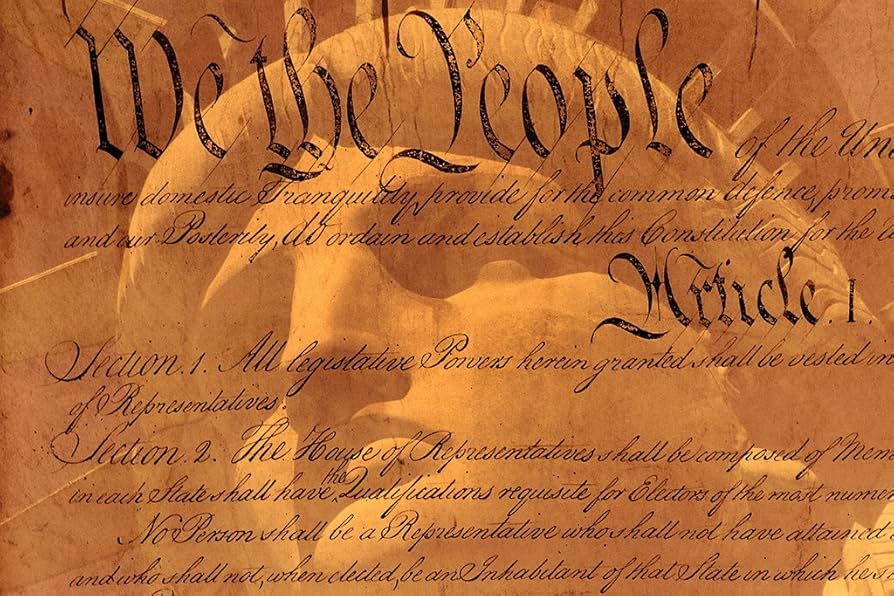 We the People of the Un
insure domestic Tranquility, provide for the common defence, prom
and our Posterity, do ordain and establish this Constitution for the
Article. I.
Section. 1. All legislative Powers herein granted shall be vested in
of Representatives.
Section. 2. The House of Representatives shall be composed of Mem
in each State shall have the Qualifications requisite for Electors of the most numer
No Person shall be a Representative who shall not have attained
and who shall not, when elected, be an Inhabitant of that State in which he s